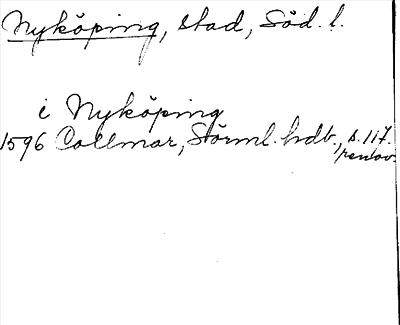 Nyköping, stad, Söd. l.
i Nyköping
1596 Collmar, Störml. hdb., s. 117.